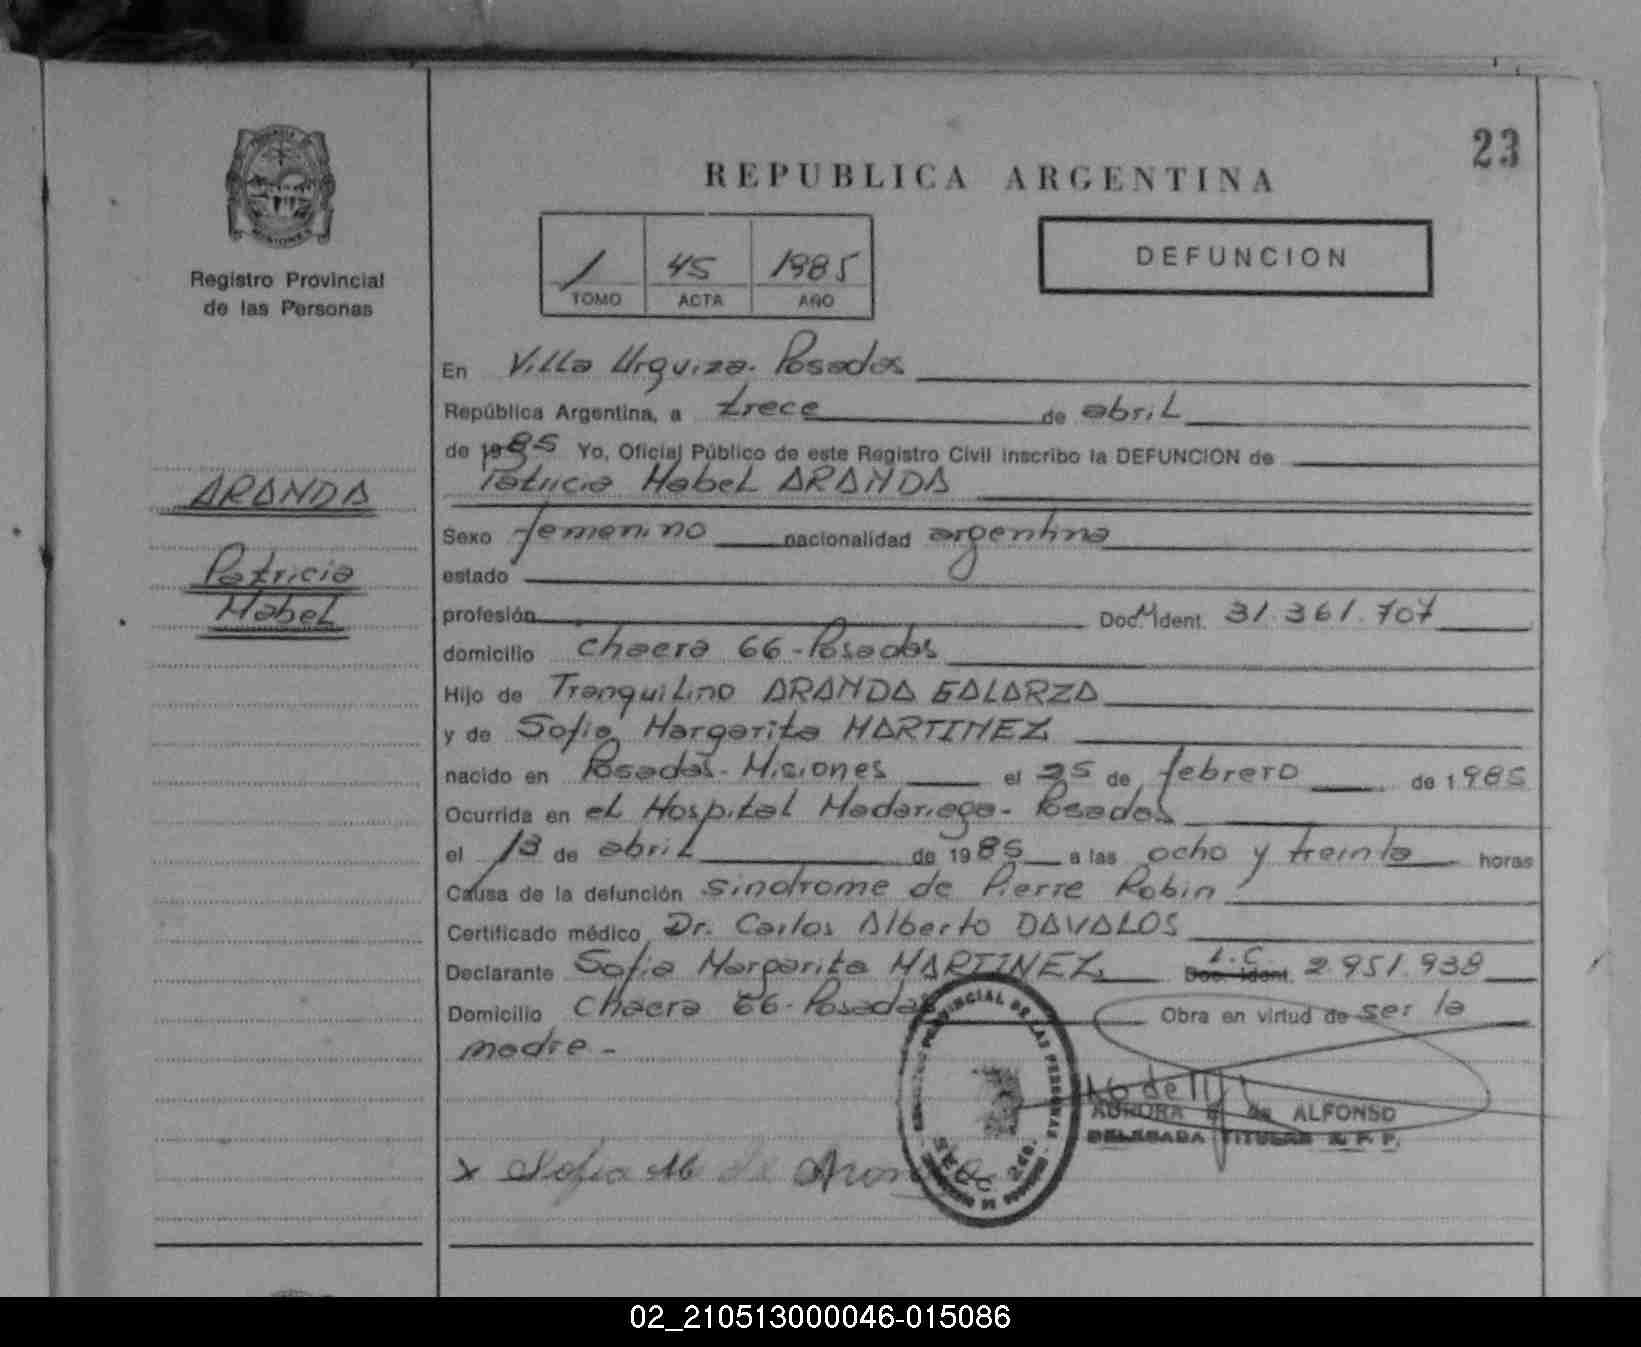 23
REPUBLICA ARGENTINA
Registro Provincial
de las Personas
1 45 1985
TOMO ACTA AÑO
DEFUNCION
ARANDA
Patricia
Mabel
En Villa Urquiza - Posadas
República Argentina, a trece de abril
de 1985 Yo, Oficial Público de este Registro Civil inscribo la DEFUNCION de
Patricia Mabel ARANDA
Sexo femenino nacionalidad argentina
estado
profesión Doc. Ident. 31.361.707
domicilio chacra 66 - Posadas
Hijo de Tranquilino ARANDA GALARZA
y de Sofia Margarita MARTINEZ
nacido en Posadas - Misiones el 25 de febrero de 1985
Ocurrida en el Hospital Madariaga - Posadas
el 13 de abril de 1985 a las ocho y treinta horas
Causa de la defunción sindrome de Pierre Robin
Certificado médico Dr. Carlos Alberto DAVALOS
Declarante Sofia Margarita MARTINEZ L.C. Doc. Ident. 2.951.939
Domicilio Chacra 66 - Posadas Obra en virtud de ser la
madre -
PROVINCIAL DE LAS PERSONAS
AURORA de ALFONSO
DELEGADA TITULAR
x Sofia M de Aran
02_210513000046-015086